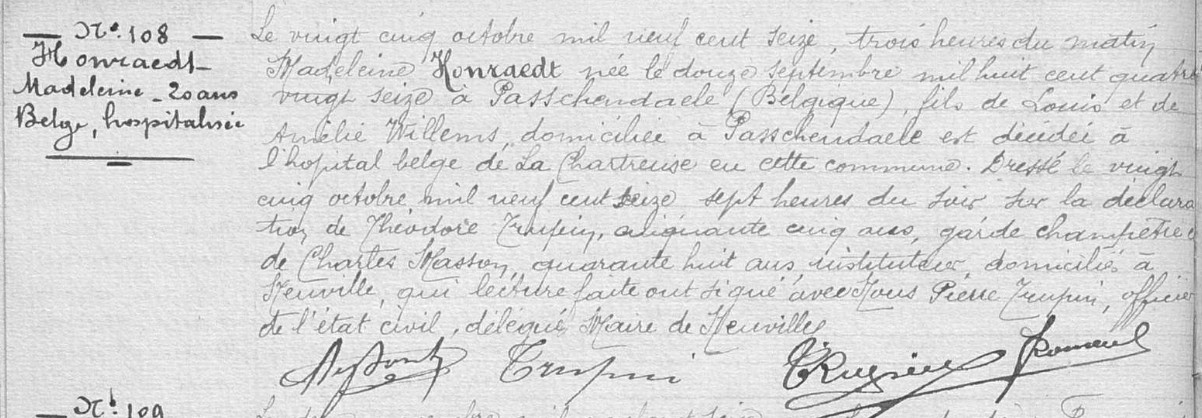 — N°. 108 —
Honraedt
Madeleine _ 20 ans
Belge, hospitalisée
Le vingt cinq octobre mil neuf cent seize, trois heures du matin
Madeleine Honraedt née le douze septembre mil huit cent quatre
vingt seize à Passchendaele (Belgique), fils de Louis et de
Amélie Willems, domiciliée à Passchendaele est décédée à
l'hopital belge de La Chartreuse en cette commune. Dressé le vingt
cinq octobre mil neuf cent seize sept heures du soir sur la declara
tion de Théodore Trupin, cinquante cinq ans, garde champêtre
de Charles Masson, quarante huit ans, instituteur, domiciliés à
Neuville, qui lecture faite ont signé avec Nous Pierre Trupin, officier
de l'état civil, délégué, Maire de Neuville
Trupin
N° 109